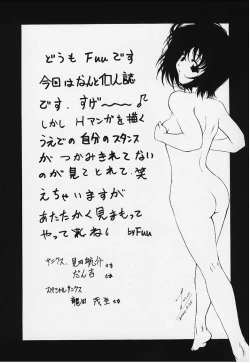 どうも Fuu です
今回はなんと個人誌
です。すげ〜〜〜♪
しかし Hマンガを描く
うえでの 自分のスタンス
が つかみきれてない
のが見てとれて、笑
えちゃいますが
あたたかく見まもって
やって下さいね! by Fuu
サンクス
だん吉
スペシャルサンクス